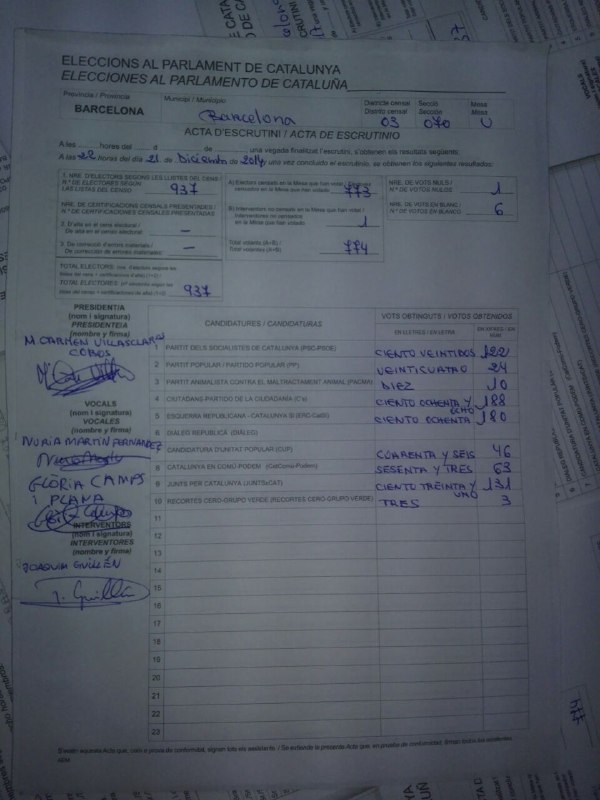 ELECCIONS AL PARLAMENT DE CATALUNYA
ELECCIONES AL PARLAMENTO DE CATALUÑA
Província / Provincia
BARCELONA
Municipi / Municipio
Barcelona
Districte censal
Distrito censal
03
Secció
Sección
070
Mesa
Mesa
U
ACTA D'ESCRUTINI / ACTA DE ESCRUTINIO
A les hores del d de , una vegada finalitzat l'escrutini, s'obtenen els resultats següents:
A las 22 horas del día 21 de Diciembre de 2017 una vez concluido el escrutinio, se obtienen los siguientes resultados:
1. NRE. D'ELECTORS SEGONS LES LLISTES DEL CENS /
N.º DE ELECTORES SEGÚN
LAS LISTAS DEL CENSO
937
NRE. DE CERTIFICACIONS CENSALS PRESENTADES /
N.º DE CERTIFICACIONES CENSALES PRESENTADAS
2. D'alta en el cens electoral /
De alta en el censo electoral:
–
3. De correcció d'errors materials /
De corrección de errores materiales:
–
TOTAL ELECTORS:
TOTAL ELECTORES:
937
A) Electors censats en la Mesa que han votat /
censados en la Mesa que han votado
773
B) Interventors no censats en la Mesa que han votat /
Interventores no censados
en la Mesa que han votado
1
Total votants (A+B) /
Total votantes (A+B)
774
NRE. DE VOTS NULS /
N.º DE VOTOS NULOS
1
NRE. DE VOTS EN BLANC /
N.º DE VOTOS EN BLANCO
6
PRESIDENT/A
(nom i signatura)
PRESIDENTE/A
(nombre y firma)
M CARMEN VILLASCLARAS
COBOS
VOCALS
(nom i signatura)
VOCALES
(nombre y firma)
NURIA MARTIN FERNANDEZ
GLÒRIA CAMPS
I PLANA
INTERVENTORS
(nom i signatura)
INTERVENTORES
(nombre y firma)
JOAQUIM GUILLÉN
J. Guillén
CANDIDATURES / CANDIDATURAS
VOTS OBTINGUTS / VOTOS OBTENIDOS
EN LLETRES / EN LETRA
EN XIFRES / EN NÚM.
1 PARTIT DELS SOCIALISTES DE CATALUNYA (PSC-PSOE) CIENTO VEINTIDOS 122
2 PARTIT POPULAR / PARTIDO POPULAR (PP) VEINTICUATRO 24
3 PARTIT ANIMALISTA CONTRA EL MALTRACTAMENT ANIMAL (PACMA) DIEZ 10
4 CIUTADANS-PARTIDO DE LA CIUDADANÍA (C's) CIENTO OCHENTA Y OCHO 188
5 ESQUERRA REPUBLICANA - CATALUNYA SÍ (ERC-CatSí) CIENTO OCHENTA 180
6 DIÀLEG REPUBLICÀ (DIÀLEG)
7 CANDIDATURA D'UNITAT POPULAR (CUP) CUARENTA Y SEIS 46
8 CATALUNYA EN COMÚ-PODEM (CatComú-Podem) SESENTA Y TRES 63
9 JUNTS PER CATALUNYA (JUNTSxCAT) CIENTO TREINTA Y UNO 131
10 RECORTES CERO-GRUPO VERDE (RECORTES CERO-GRUPO VERDE) TRES 3
11
12
13
14
15
16
17
18
19
20
21
22
23
S'estén aquesta Acta que, com a prova de conformitat, signen tots els assistents. / Se extiende la presente Acta que, en prueba de conformidad, firman todos los asistentes.
774